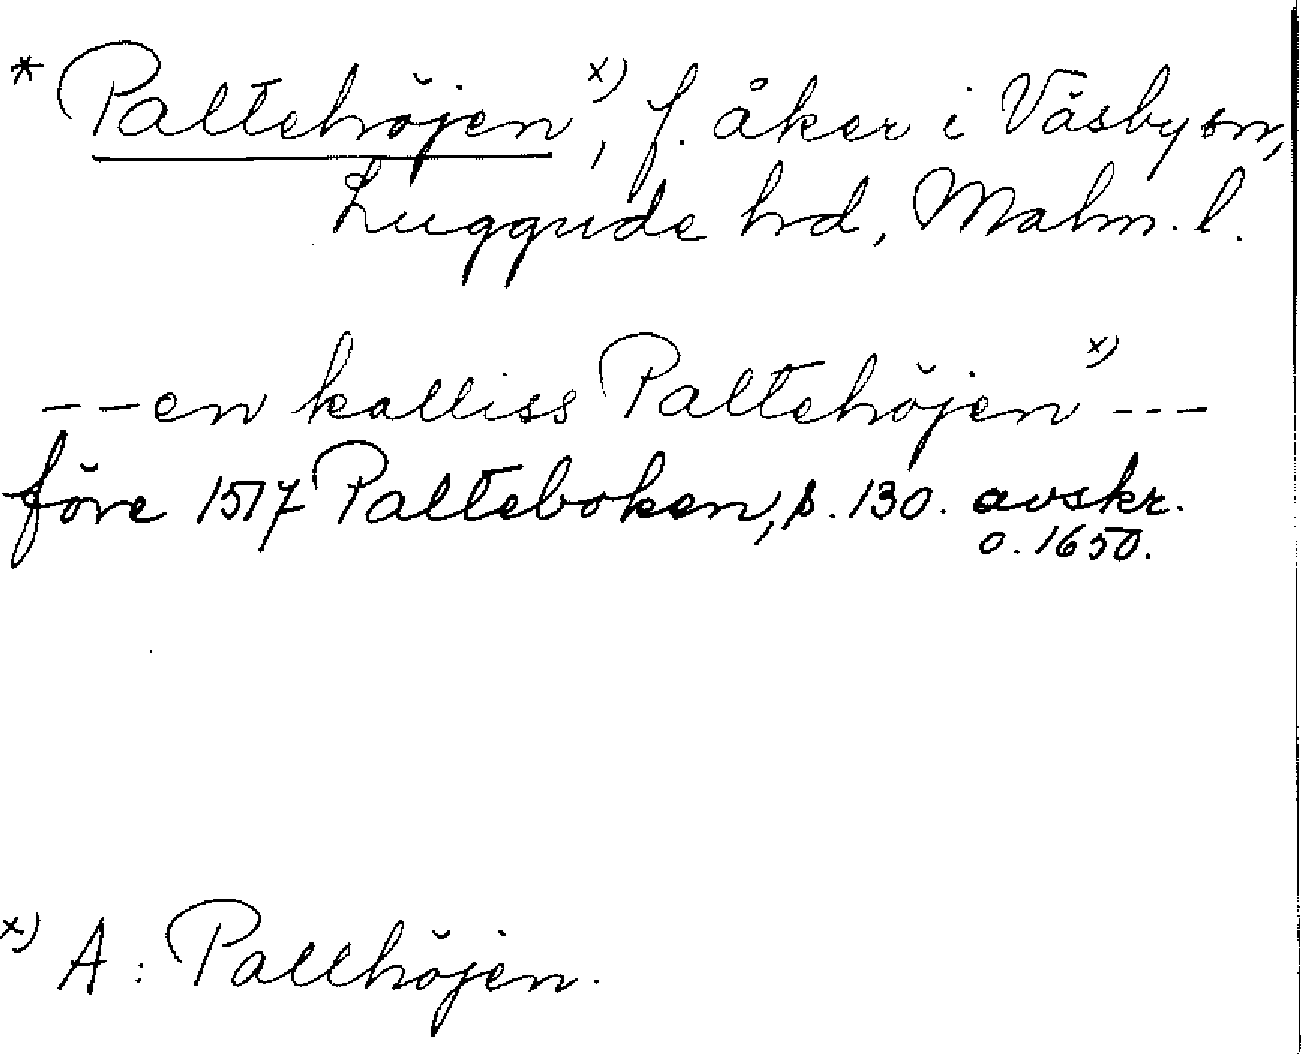 * Paltehöjen x), f. åker i Väsby sn,
Luggude hd, Malm. l.
--en kalliss Paltehöjen x) ---
före 1517 Palteboken, s. 130. avskr.
o. 1650.
x) A: Pallhöjen.